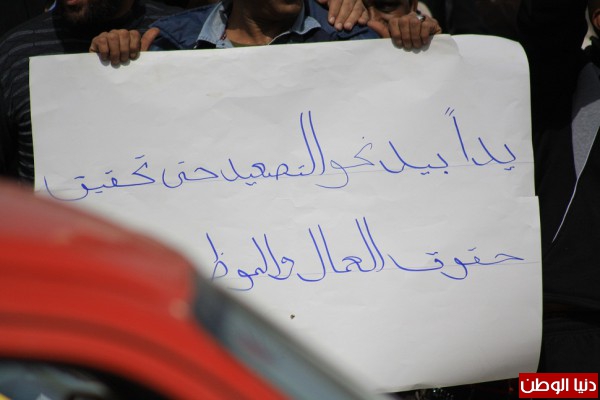 يداً بيد نحو التصعيد حتى تحقيق
حقوق العمال والموظ
دنيا الوطن